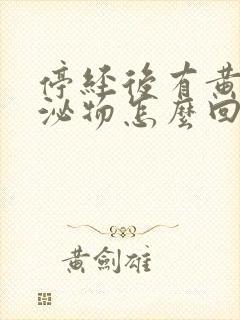 停經後有黃
泌物怎麼回
黃劍雄